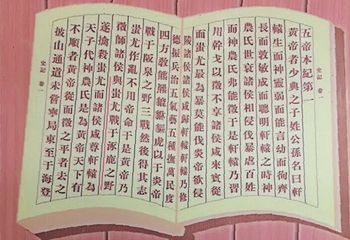 史記 卷一
五帝本紀第一
黃帝者少典之子姓公孫名曰軒
轅生而神靈弱而能言幼而徇齊
長而敦敏成而聰明軒轅之時神
農氏世衰諸侯相侵伐暴虐百姓
而神農氏弗能征于是軒轅乃習
用幹戈以徵不享諸侯咸來賓從
而蚩尤最為暴莫能伐炎帝欲侵
陵諸侯諸侯咸歸軒轅軒轅乃修
德振兵治五氣藝五種撫萬民度
四方教熊羆貔貅貙虎以于炎帝
戰于阪泉之野三戰然後得其志
蚩尤作亂不用帝命于是黃帝乃
徵師諸侯與蚩尤戰于涿鹿之野
遂擒殺蚩尤而諸侯咸尊軒轅為
天子代神農氏是為黃帝天下有
不順者黃帝從而徵之平者去之
披山通道未嘗寧居東至于海登
史記 卷一